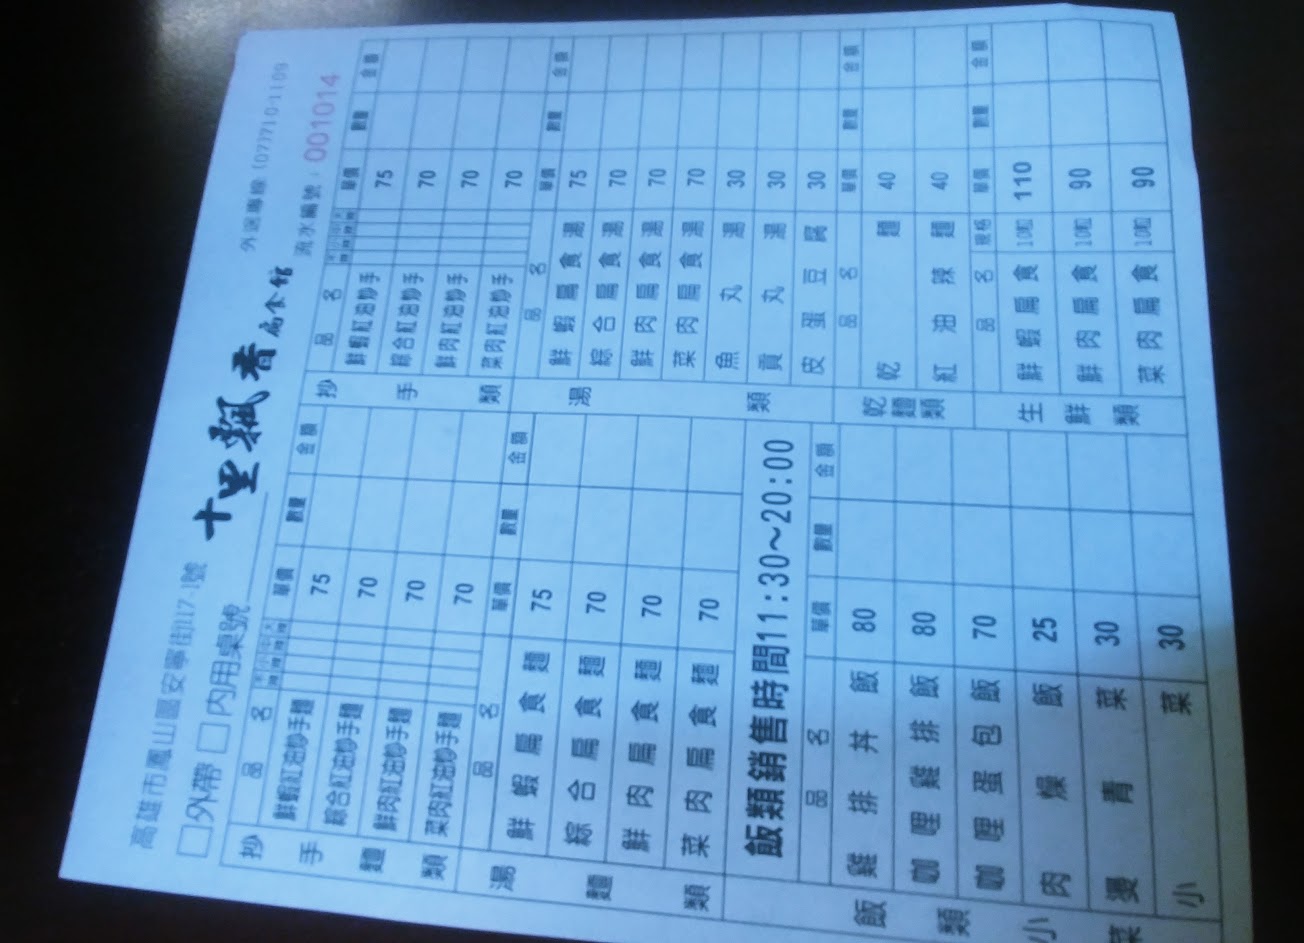 十里飄香扁食館
外送專線 (07)710-1109
高雄市鳳山區安寧街117-1號
□外帶 □內用桌號
流水編號：001014
抄手麵類
品名 不辣 小辣 中辣 大辣 單價 數量 金額
鮮蝦紅油炒手麵 75
綜合紅油炒手麵 70
鮮肉紅油炒手麵 70
菜肉紅油炒手麵 70
湯麵類
品名 單價 數量 金額
鮮蝦扁食麵 75
綜合扁食麵 70
鮮肉扁食麵 70
菜肉扁食麵 70
飯類銷售時間11:30~20:00
飯類
品名 單價 數量 金額
雞排丼飯 80
咖哩雞排飯 80
咖哩蛋包飯 70
肉燥飯 25
小菜
燙青菜 30
小菜 30
抄手類
品名 不辣 小辣 中辣 大辣 單價 數量 金額
鮮蝦紅油炒手 75
綜合紅油炒手 70
鮮肉紅油炒手 70
菜肉紅油炒手 70
湯類
品名 單價 數量 金額
鮮蝦扁食湯 75
綜合扁食湯 70
鮮肉扁食湯 70
菜肉扁食湯 70
魚丸湯 30
貢丸湯 30
皮蛋豆腐 30
乾麵類
品名 單價 數量 金額
乾麵 40
紅油辣麵 40
生鮮類
品名 規格 單價 數量 金額
鮮蝦扁食 10粒 110
鮮肉扁食 10粒 90
菜肉扁食 10粒 90